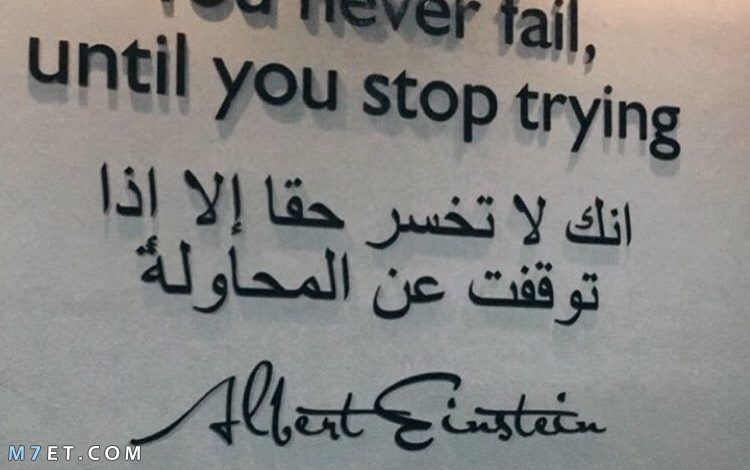 You never fail,
until you stop trying
انك لا تخسر حقا إلا اذا
توقفت عن المحاولة
Albert Einstein
M7ET.COM